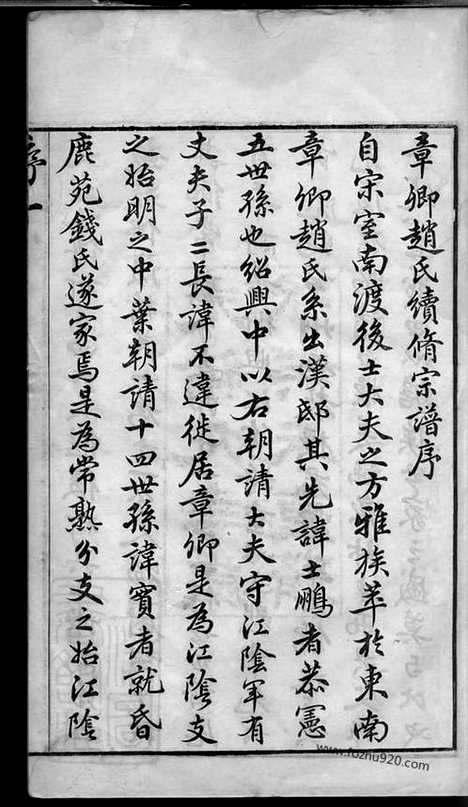 章卿趙氏續脩宗譜序
自宋室南渡後士大夫之方雅族萃於東南
章卿趙氏系出漢邸其先諱士鵬者恭憲
五世孫也紹興中以右朝請大夫守江陰軍有
丈夫子二長諱不違徙居章卿是為江陰支
之始明之中葉朝請十四世孫諱實者就昏
鹿苑錢氏遂家焉是為常熟分支之始江陰
序一
www.fozhu920.com